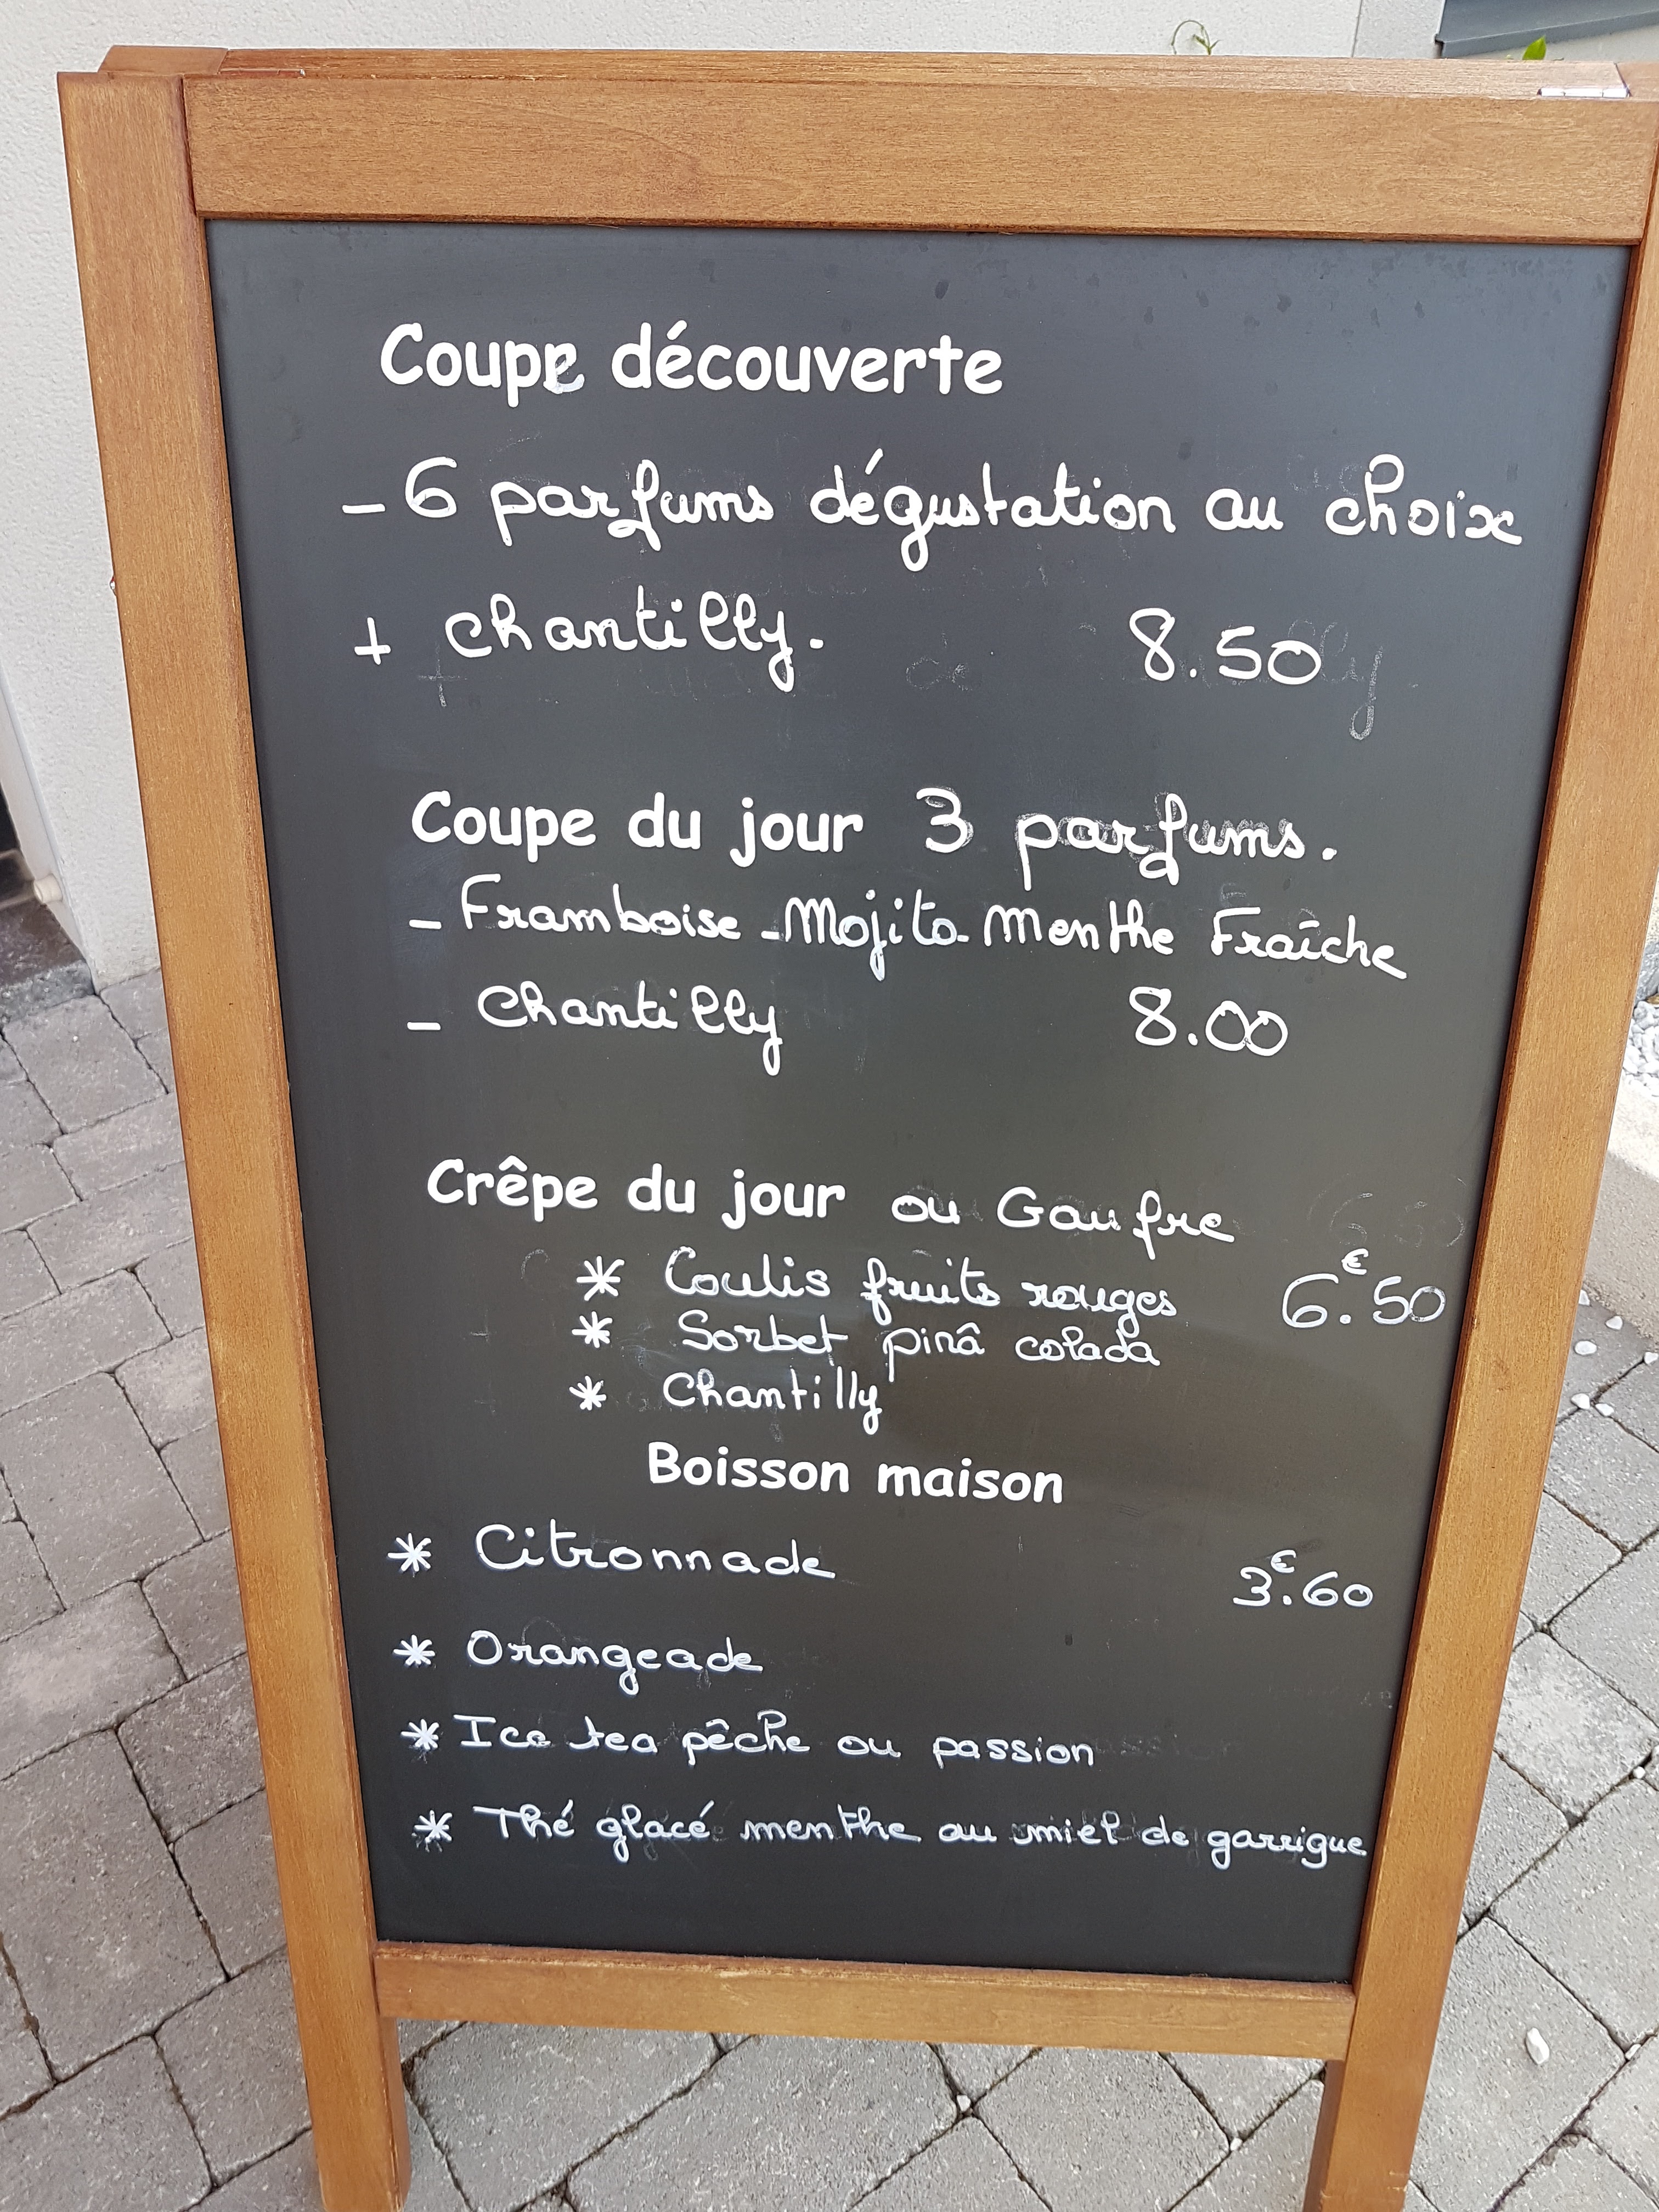 Coupe découverte
- 6 parfums dégustation au choix
+ chantilly. 8.50
Coupe du jour 3 parfums.
- Framboise - Mojito - Menthe Fraîche
- Chantilly 8.00
Crêpe du jour ou Gaufre
* Coulis fruits rouges 6.€50
* Sorbet pinâ colada
* Chantilly
Boisson maison
* Citronnade 3.€60
* Orangeade
* Ice tea pêche ou passion
* Thé glacé menthe au miel de garrigue